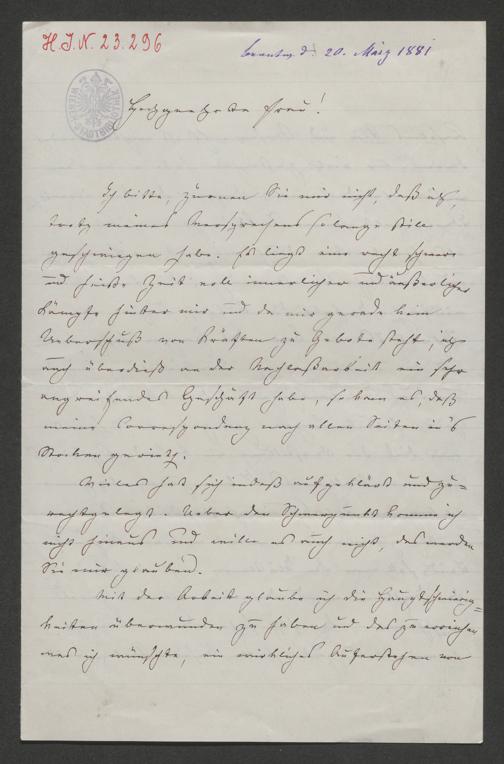 H. I. N. 23.296
beantw. d. 20. März 1881
WIENER STADTBIBLIOTHEK
Hochgeehrte Frau!
Ich bitte, zürnen Sie mir nicht, daß ich,
trotz meines Versprechens so lange still
geschwiegen habe. Es liegt eine recht schwere
und heiße Zeit voll innerlicher und äußerlicher
Kämpfe hinter mir und da mir gerade kein
Ueberschuß von Kräften zu Gebote steht, ich
auch überdieß an der Nachlaßarbeit ein sehr
angreifendes Geschäft habe, so kam es, daß
meine Correspondenz nach allen Seiten in's
Stocken gerieth.
Vieles hat sich indeß aufgeklärt und zu=
rechtgelegt. Ueber den Schmerzpunkt komme ich
nicht hinaus und will es auch nicht, das werden
Sie mir glauben.
Mit der Arbeit glaube ich die Hauptschwierig=
keiten überwunden zu haben und das zu erreichen
was ich wünschte, ein wirkliches Auferstehen von